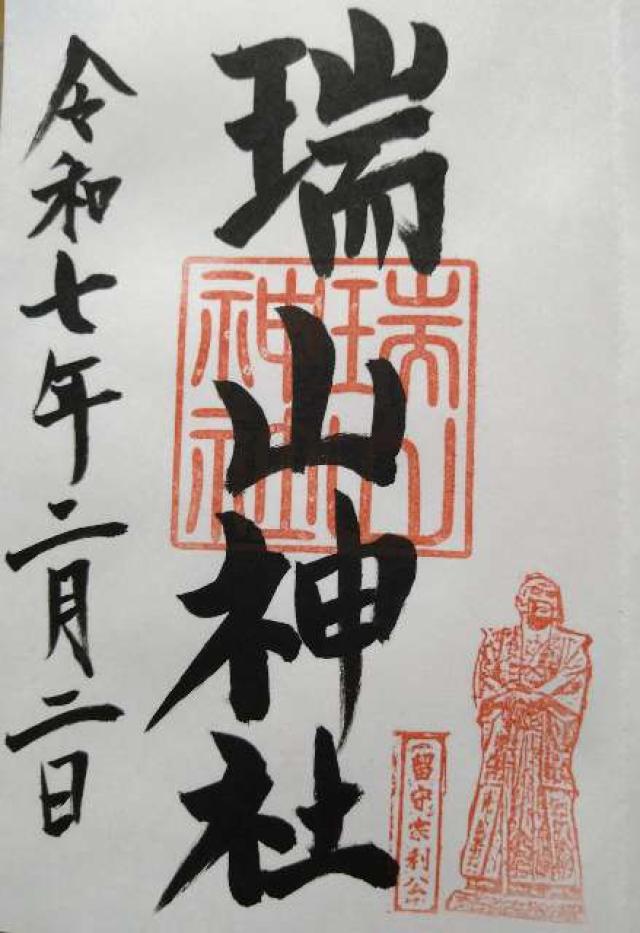 瑞山神社
瑞山
神社
留守宗利公
令和七年二月二日